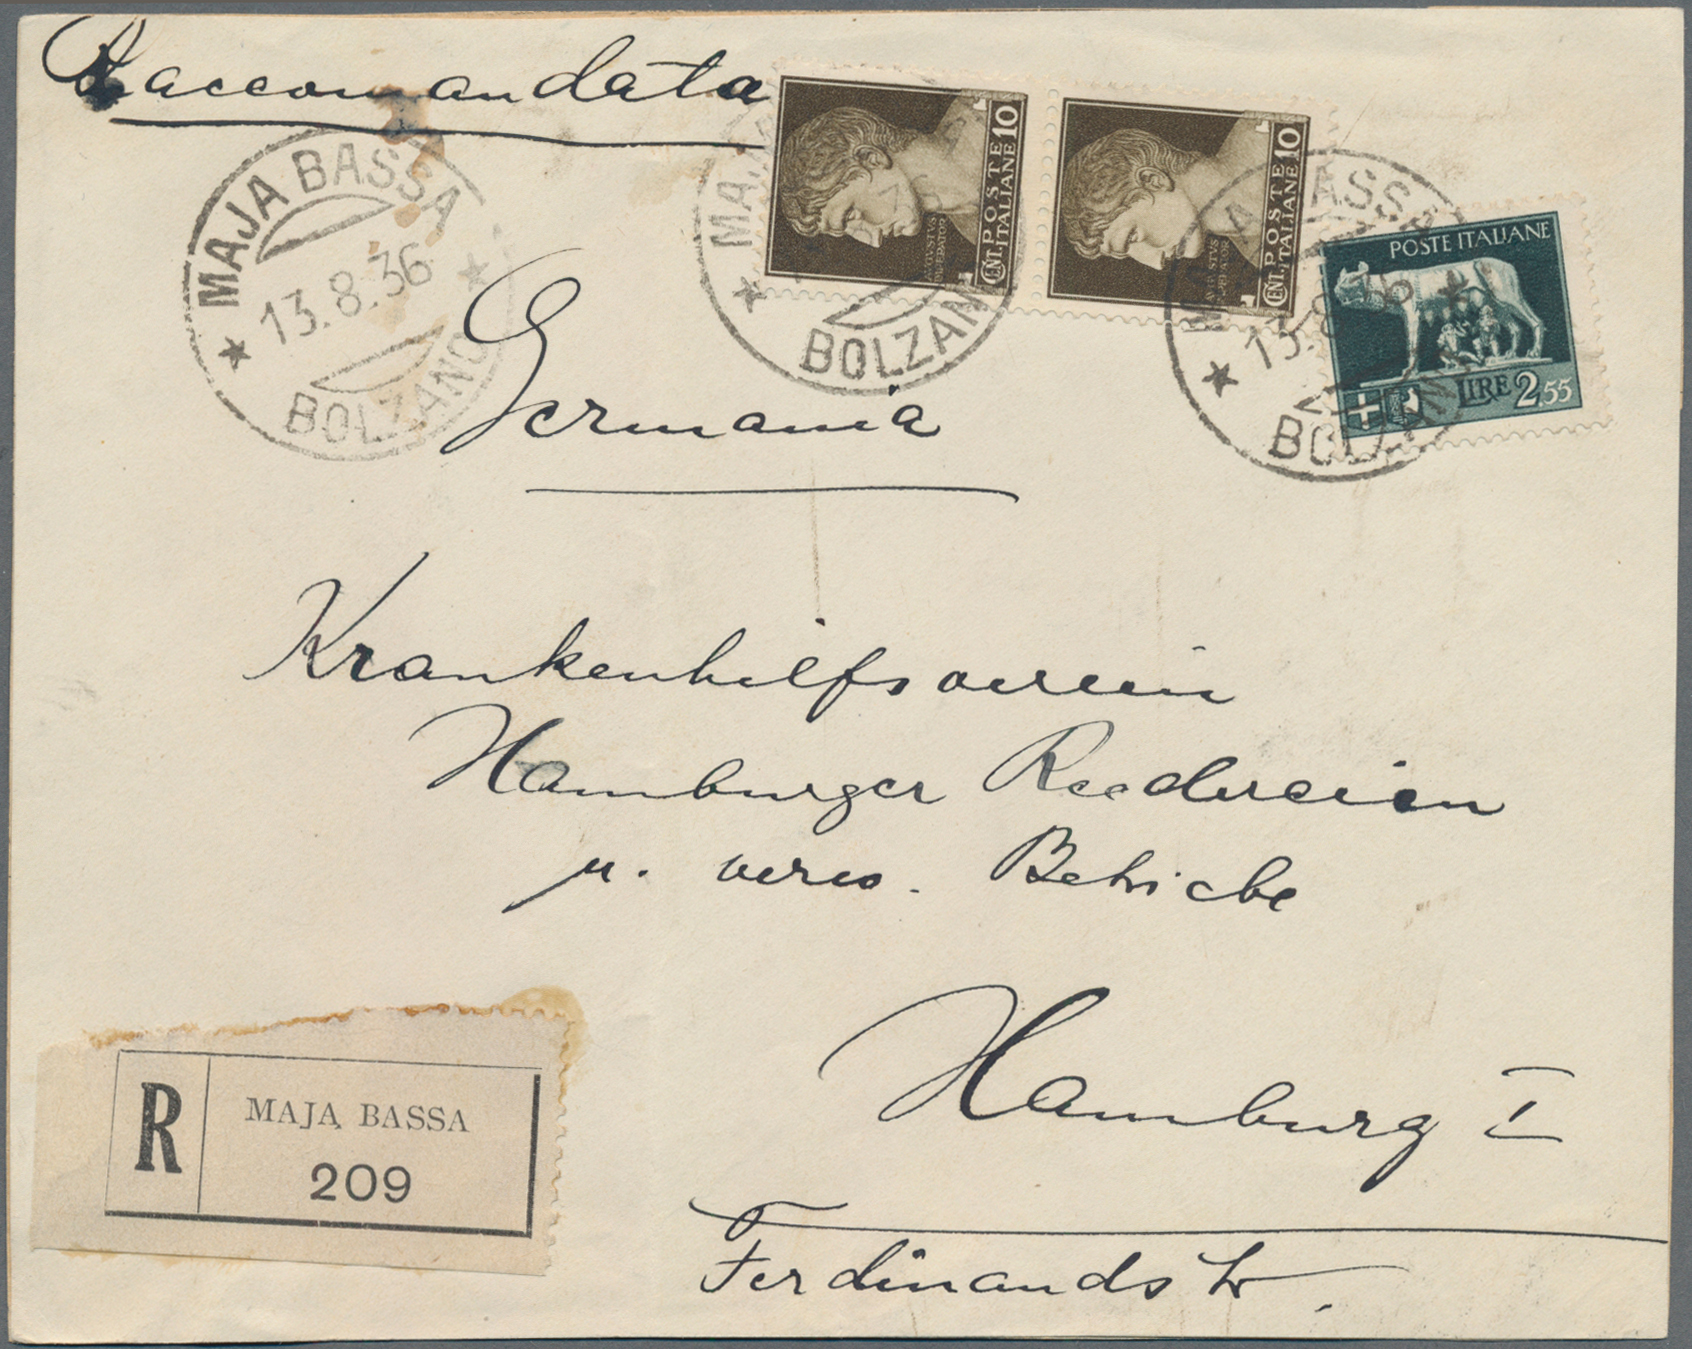 Raccomandata
MAJA BASSA
13.8.36
BOLZANO
MAJA
BOLZANO
CENT. 10
POSTE ITALIANE
AVGVSTVS
IMPERATOR
CENT. 10
POSTE ITALIANE
BASSA
13.8.36
POSTE ITALIANE
LIRE 2,55
Germania
Krankenhilfsverein
Hamburger Reedereien
u. verw. Betriebe
R
MAJA BASSA
209
Hamburg I
Ferdinandstr.